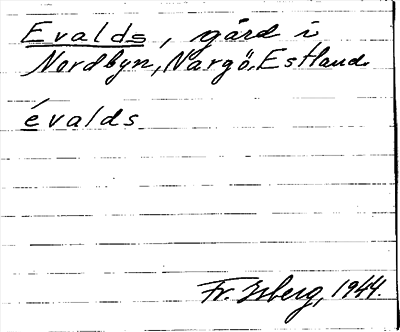 Evalds, gård i
Nordbyn, Nargö, Estland.
évalds
Fr. Isberg, 1944.